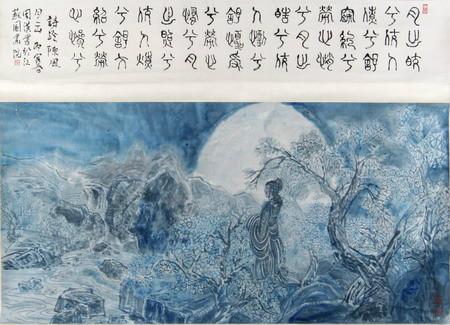 月出皎
兮佼人
僚兮舒
窈糾兮
勞心悄
兮月出
皓兮佼
人懰兮
舒懮受
兮勞心
慅兮月
出照兮
佼人燎
兮舒夭
紹兮勞
心慘兮
詩經陳風
月出